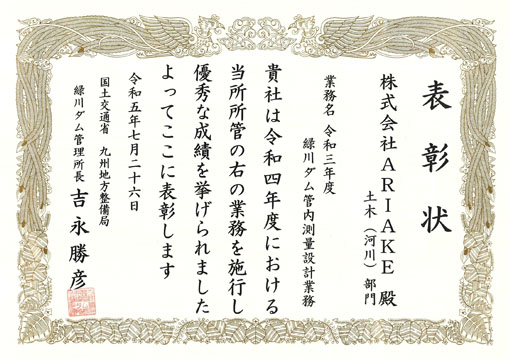 表彰状
株式会社ARIAKE殿
土木(河川)部門
業務名 令和三年度
緑川ダム管内測量設計業務
貴社は令和四年度における
当所所管の右の業務を施行し
優秀な成績を挙げられました
よってここに表彰します
令和五年七月二十六日
国土交通省 九州地方整備局
緑川ダム管理所長 吉永勝彦